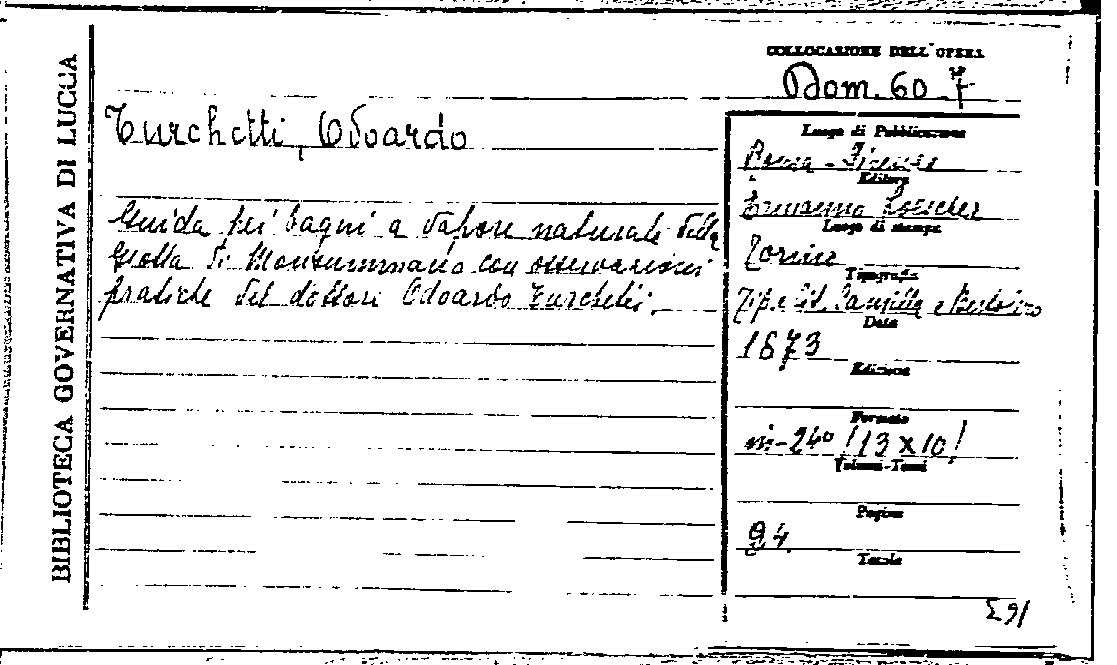 BIBLIOTECA GOVERNATIVA DI LUCCA
COLLOCAZIONE DELL'OPERA
Dom. 60 7
Turchetti, Odoardo
Guida pei bagni a vapore naturale della
Grotta di Monsummano con osservazioni
pratiche del dottore Odoardo Turchetti.
Luogo di Pubblicazione
Roma - Firenze
Editore
Ermanno Loescher
Luogo di stampa
Torino
Tipografia
Tip. e Lit. e
Data
1873
Edizione
Formato
in-24° /13 x 10/
Volumi-Tomi
Pagine
94.
Tavole